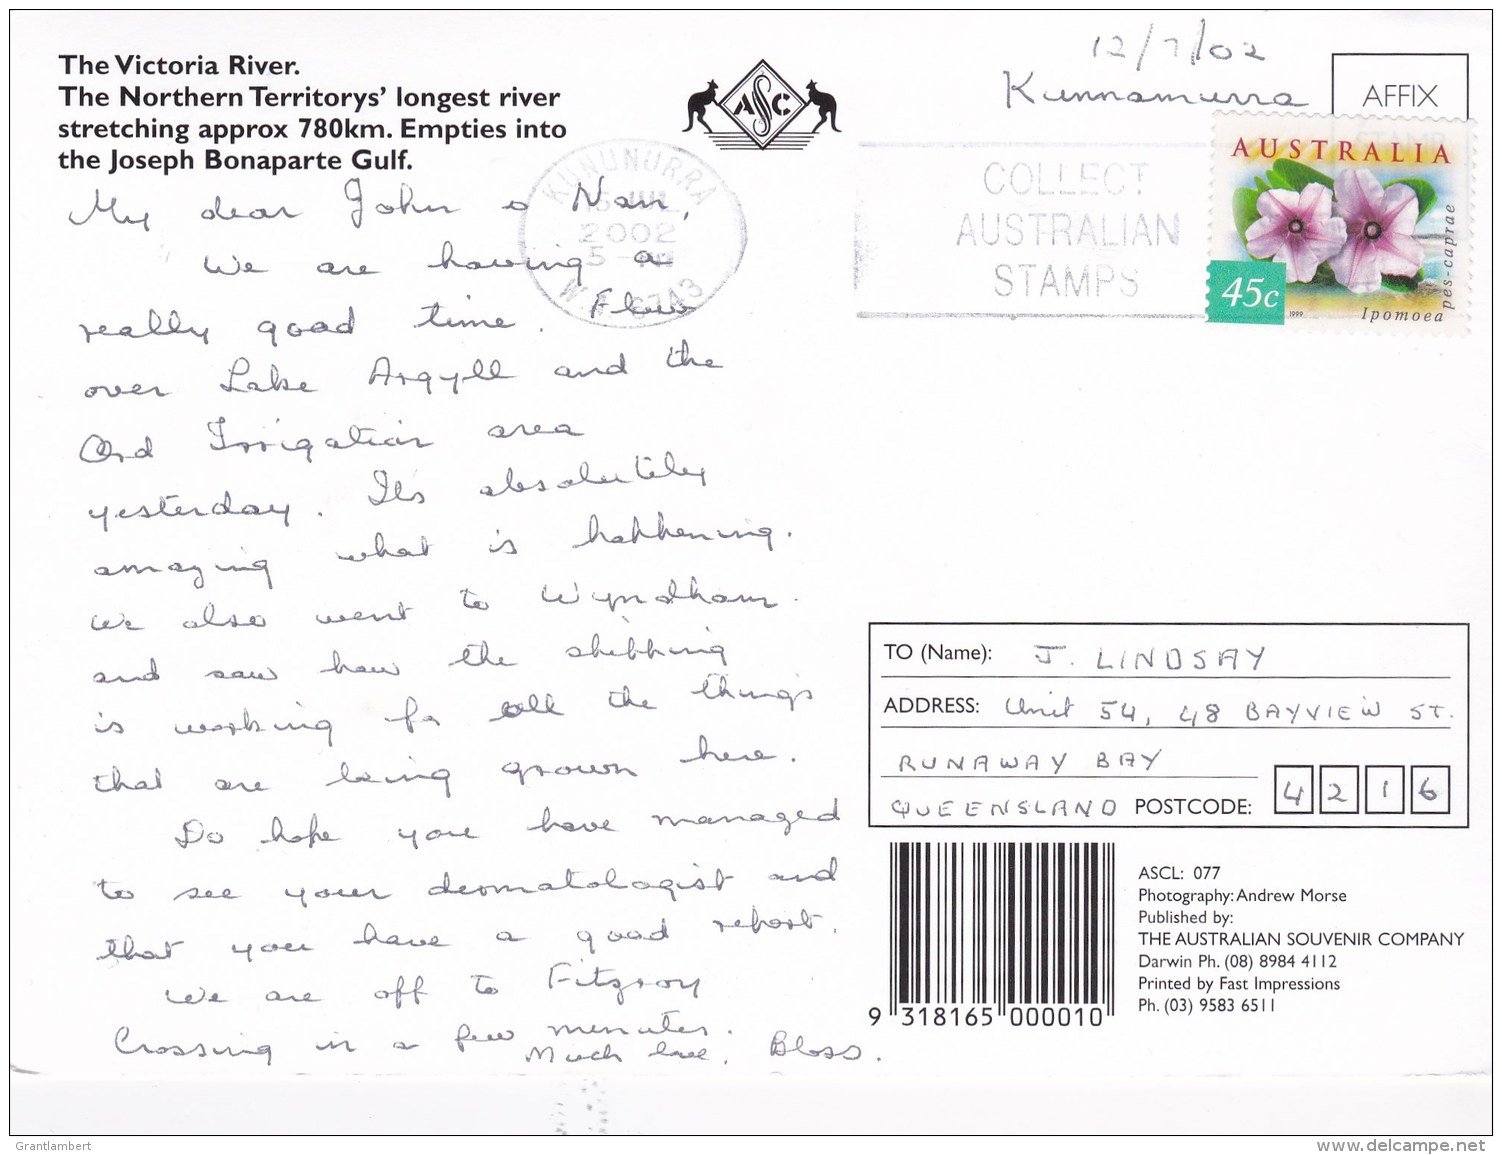 The Victoria River.
The Northern Territorys' longest river
stretching approx 780km. Empties into
the Joseph Bonaparte Gulf.
ASC
12/7/02
Kunnamurra
AFFIX
KUNUNURRA
2002
W.A. 6743
COLLECT
AUSTRALIAN
STAMPS
AUSTRALIA
45c
1999
Ipomoea
pes-caprae
My dear John & Nan,
We are having a
really good time. Flew
over Lake Argyll and the
Ord Irrigation area
yesterday. It's absolutely
amazing what is happening.
We also went to Wyndham.
and saw how the shipping
is working for all the things
that are being grown here.
Do hope you have managed
to see your dermatologist and
that you have a good report.
We are off to Fitzroy
Crossing in a few minutes.
Much love, Bloss.
TO (Name): J. LINDSAY
ADDRESS: Unit 54, 48 BAYVIEW ST.
RUNAWAY BAY
QUEENSLAND POSTCODE: 4216
9 318165 000010
ASCL: 077
Photography: Andrew Morse
Published by:
THE AUSTRALIAN SOUVENIR COMPANY
Darwin Ph. (08) 8984 4112
Printed by Fast Impressions
Ph. (03) 9583 6511
Grantlambert
www.delcampe.net